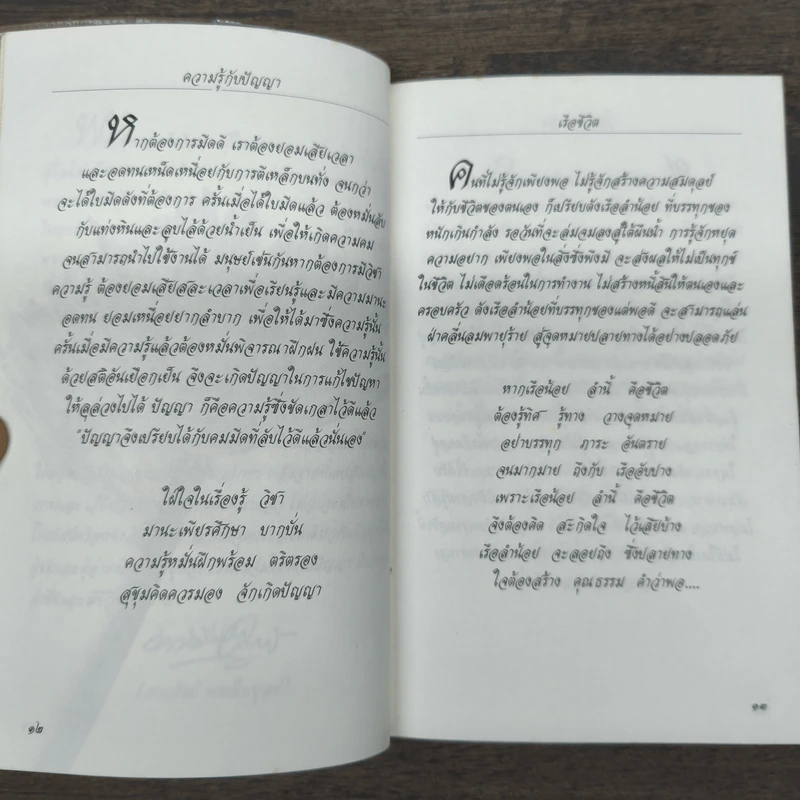 ความรู้กับปัญญา
หากต้องการมีดดี เราต้องยอมเสียเวลา
และอดทนเหน็ดเหนื่อยกับการตีเหล็กบนทั่ง จนกว่า
จะได้ใบมีดดังที่ต้องการ ครั้นเมื่อได้ใบมีดแล้ว ต้องหมั่นลับ
กับแท่งหินและลูบไล้ด้วยน้ำเย็น เพื่อให้เกิดความคม
จนสามารถนำไปใช้งานได้ มนุษย์เช่นกันหากต้องการมีวิชา
ความรู้ ต้องยอมเสียสละเวลาเพื่อเรียนรู้และมีความมานะ
อดทน ยอมเหนื่อยยากลำบาก เพื่อให้ได้มาซึ่งความรู้นั้น
ครั้นเมื่อมีความรู้แล้วต้องหมั่นพิจารณาฝึกฝน ใช้ความรู้นั้น
ด้วยสติอันเยือกเย็น จึงจะเกิดปัญญาในการแก้ไขปัญหา
ให้ลุล่วงไปได้ ปัญญา ก็คือความรู้ซึ่งขัดเกลาไว้ดีแล้ว
"ปัญญาจึงเปรียบได้กับคมมีดที่ลับไว้ดีแล้วนั่นเอง"
ใฝ่ใจในเรื่องรู้ วิชา
มานะเพียรศึกษา บากบั่น
ความรู้หมั่นฝึกพร้อม ตริตรอง
สุขุมคิดควรมอง จักเกิดปัญญา
๑๒
เรือชีวิต
คนที่ไม่รู้จักเพียงพอ ไม่รู้จักสร้างความสมดุลย์
ให้กับชีวิตของตนเอง ก็เปรียบดังเรือลำน้อย ที่บรรทุกของ
หนักเกินกำลัง รอวันที่จะล่มจมลงสู่ใต้ผืนน้ำ การรู้จักหยุด
ความอยาก เพียงพอในสิ่งซึ่งพึงมี จะส่งผลให้ไม่เป็นทุกข์
ในชีวิต ไม่เดือดร้อนในการทำงาน ไม่สร้างหนี้สินให้ตนเองและ
ครอบครัว ดังเรือลำน้อยที่บรรทุกของแต่พอดี จะสามารถแล่น
ฝ่าคลื่นลมพายุร้าย สู่จุดหมายปลายทางได้อย่างปลอดภัย
หากเรือน้อย ลำนี้ คือชีวิต
ต้องรู้ทิศ รู้ทาง วางจุดหมาย
อย่าบรรทุก ภาระ อันตราย
จนมากมาย ถึงกับ เรืออับปาง
เพราะเรือน้อย ลำนี้ คือชีวิต
จึงต้องคิด สะกิดใจ ไว้เสียบ้าง
เรือลำน้อย จะลอยถึง ซึ่งปลายทาง
ใจต้องสร้าง คุณธรรม คำว่าพอ....
๑๓